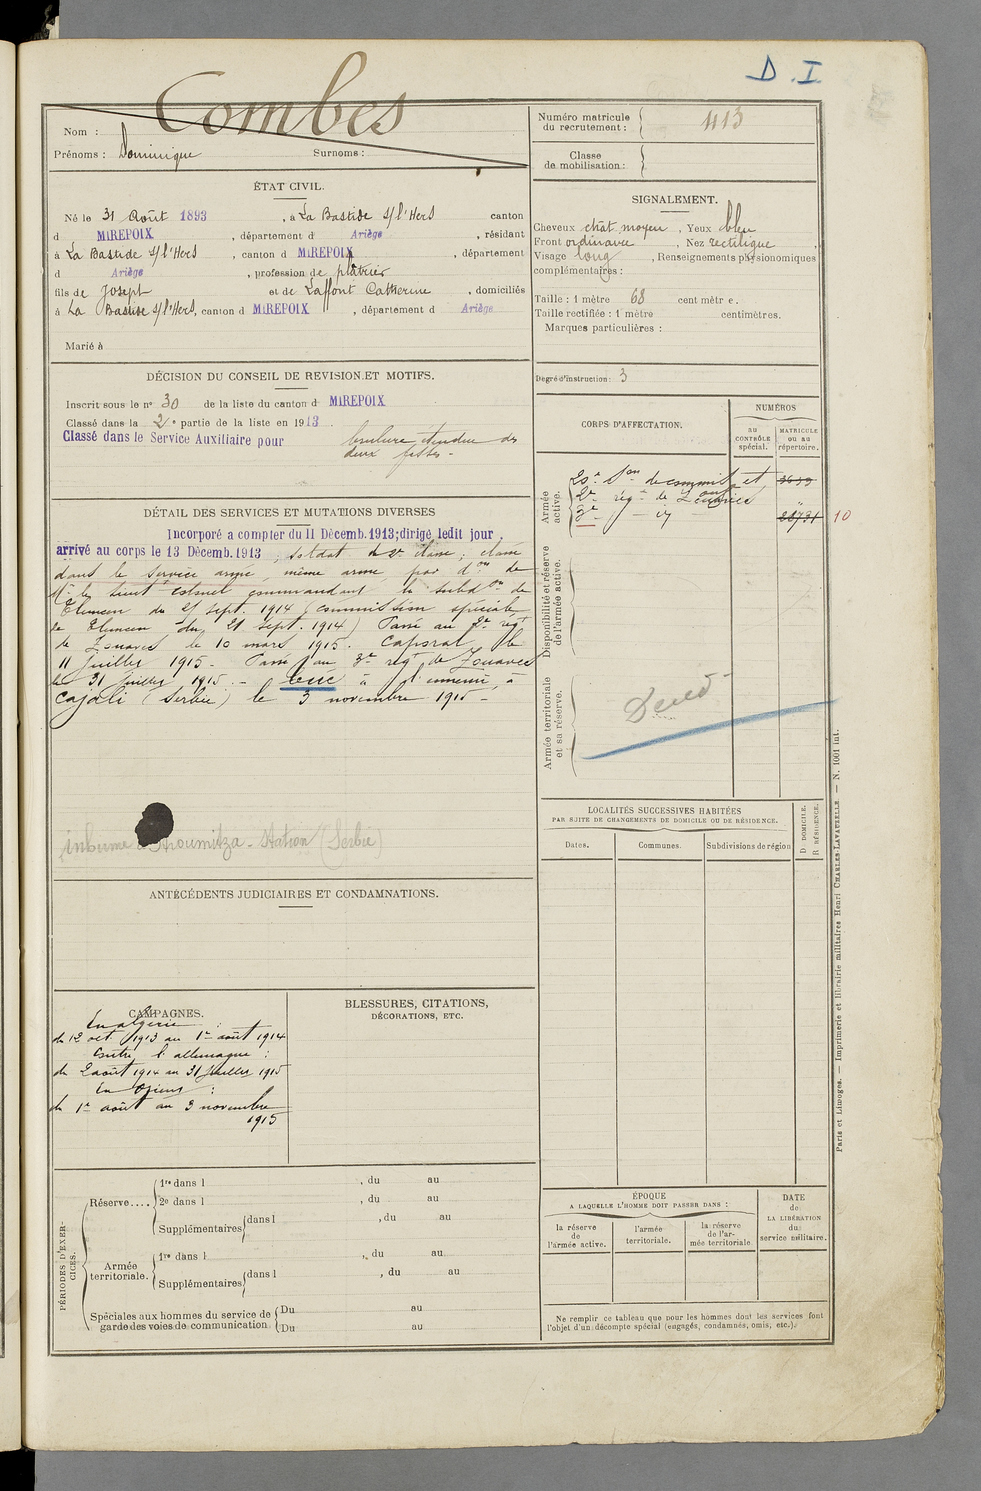 D. I
Combes
Nom :
Prénoms : Dominique Surnoms :
Numéro matricule du recrutement : 413
Classe de mobilisation :
ÉTAT CIVIL.
Né le 31 Août 1893, à La Bastide s/l'Hers canton
d MIREPOIX, département d Ariège, résidant
à La Bastide s/l'Hers, canton d MIREPOIX, département
d Ariège, profession de plâtrier
fils de Joseph et de Laffont Catherine, domiciliés
à La Bastide s/l'Hers, canton d MIREPOIX, département d Ariège
Marié à
SIGNALEMENT.
Cheveux chât. moyen, Yeux bleu
Front ordinaire, Nez rectiligne,
Visage long, Renseignements physionomiques
complémentaires :
Taille : 1 mètre 68 centimètre.
Taille rectifiée : 1 mètre centimètres.
Marques particulières :
Degré d'instruction : 3
DÉCISION DU CONSEIL DE REVISION ET MOTIFS.
Inscrit sous le n° 30 de la liste du canton d MIREPOIX
Classé dans la 2e partie de la liste en 1913.
Classé dans le Service Auxiliaire pour brulure étendue des
deux fesses -
DÉTAIL DES SERVICES ET MUTATIONS DIVERSES
Incorporé a compter du 11 Décemb. 1913; dirigé ledit jour,
arrivé au corps le 13 Décemb. 1913, soldat de 2e classe; classé
dans le service armé, même arme par don de
Mr le Lieut Colonel commandant la subdon de
Tlemcen du 21 sept. 1914 (commission spéciale
de Tlemcen du 21 sept. 1914) Passé au 2e régt
de Zouaves le 10 mars 1915. Caporal le
11 Juillet 1915. Passé au 3e régt de Zouaves
le 31 Juillet 1915. - Tué à l'ennemi à
Cajali (Serbie) le 3 novembre 1915 -
inhumé Stroumitza - Station (Serbie)
CORPS D'AFFECTATION.
NUMÉROS
au contrôle spécial.
MATRICULE ou au répertoire.
Armée active.
20e Son de commis et
2e rég. de Zouaves
3e - id
10
Disponibilité et réserve de l'armée active.
Armée territoriale et sa réserve.
LOCALITÉS SUCCESSIVES HABITÉES
PAR SUITE DE CHANGEMENTS DE DOMICILE OU DE RÉSIDENCE.
Dates. Communes. Subdivisions de région
D DOMICILE.
R RÉSIDENCE.
ANTÉCÉDENTS JUDICIAIRES ET CONDAMNATIONS.
CAMPAGNES.
En algérie :
du 12 oct. 1913 au 1er août 1914
Contre l'allemagne :
du 2 août 1914 au 31 Juillet 1915
En Orient :
du 1er août au 3 novembre
1915
BLESSURES, CITATIONS,
DÉCORATIONS, ETC.
PÉRIODES D'EXERCICES.
Réserve....
1re dans l , du au
2e dans l , du au
Supplémentaires dans l , du au
Armée territoriale.
1re dans l , du au
Supplémentaires dans l , du au
Spéciales aux hommes du service de garde des voies de communication
Du au
Du au
ÉPOQUE
A LAQUELLE L'HOMME DOIT PASSER DANS :
la réserve de l'armée active.
l'armée territoriale.
la réserve de l'armée territoriale
DATE de LA LIBÉRATION du service militaire.
Ne remplir ce tableau que pour les hommes dont les services font
l'objet d'un décompte spécial (engagés, condamnés, omis, etc.).
Paris et Limoges. — Imprimerie et librairie militaires Henri CHARLES-LAVAUZELLE — N. 1001 int.